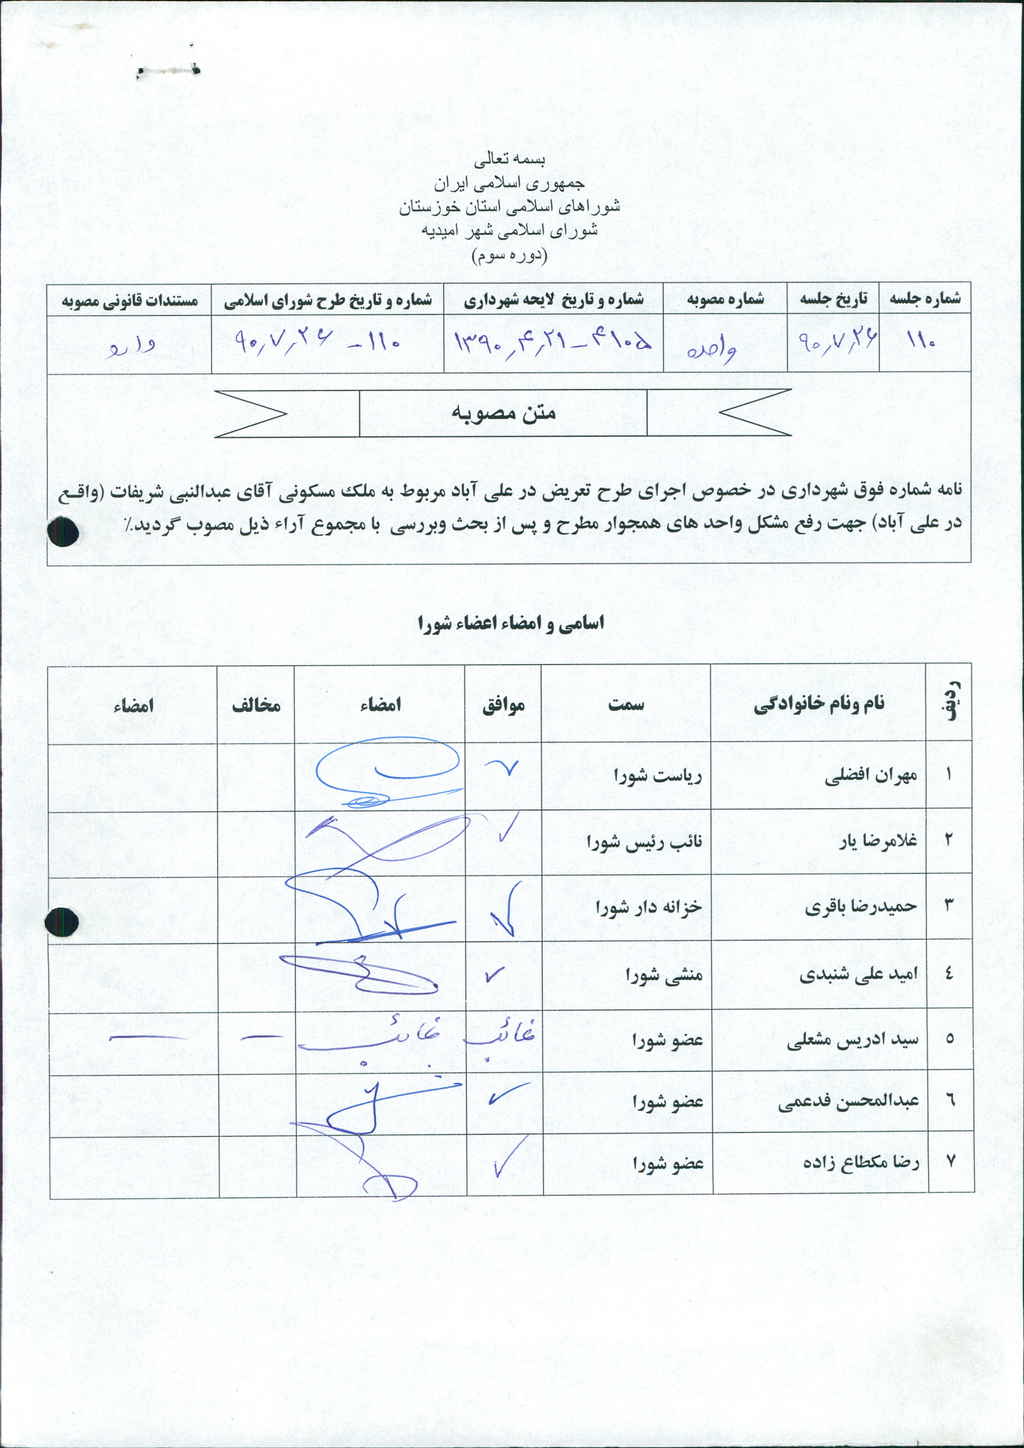 بسمه تعالی
جمهوری اسلامی ایران
شوراهای اسلامی استان خوزستان
شورای اسلامی شهر امیدیه
(دوره سوم)
شماره جلسه تاریخ جلسه شماره مصوبه شماره و تاریخ لایحه شهرداری شماره و تاریخ طرح شورای اسلامی مستندات قانونی مصوبه
۱۱۰ ۹۰٫۷٫۲۶ واحده ۴۱۰۵ – ۱۳۹۰٫۴٫۲۱ ۱۱۰ – ۹۰٫۷٫۲۶ دارد
متن مصوبه
نامه شماره فوق شهرداری در خصوص اجرای طرح تعریض در علی آباد مربوط به ملک مسکونی آقای عبدالنبی شریفات (واقع
در علی آباد) جهت رفع مشکل واحد های همجوار مطرح و پس از بحث وبررسی با مجموع آراء ذیل مصوب گردید.٪
اسامی و امضاء اعضاء شورا
ردیف نام ونام خانوادگی سمت موافق امضاء مخالف امضاء
۱ مهران افضلی ریاست شورا ✓
۲ غلامرضا یار نائب رئیس شورا ✓
۳ حمیدرضا باقری خزانه دار شورا ✓
٤ امید علی شنبدی منشی شورا ✓
۵ سید ادریس مشعلی عضو شورا غائب غائب — —
٦ عبدالمحسن فدعمی عضو شورا ✓
۷ رضا مکطاع زاده عضو شورا ✓